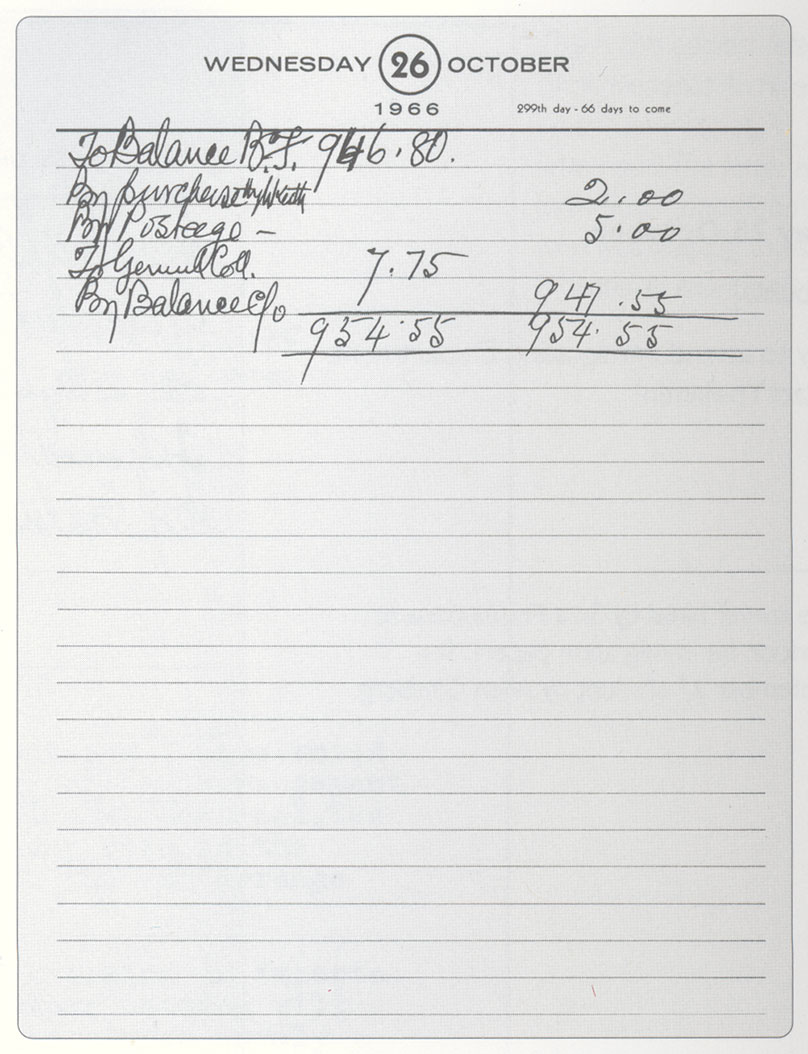 WEDNESDAY 26 OCTOBER
1966 299th day - 66 days to come
To Balance B.F. 946.80.
By purchase 2.00
By Postage - 5.00
To General Coll. 7.75
By Balance c/o 947.55
954.55 954.55